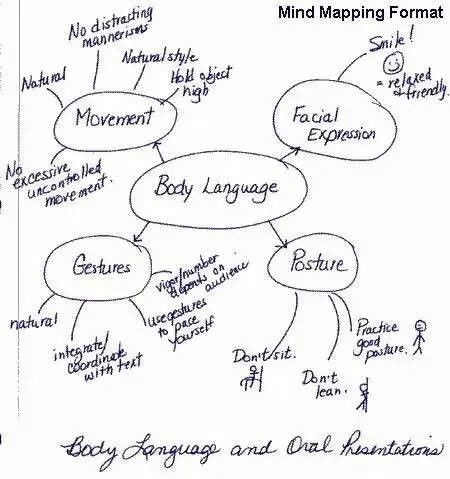 Mind Mapping Format
No distrasting
mannerisms
Natural
Natural style
Hold object
high
Movement
No
excessive
uncontrolled
movement.
Smile!
= relaxed
& friendly.
Facial
Expression
Body Language
Gestures
natural
integrate/
coordinate
with text
vigor/number
depends on
audience
use gestures
to pace
yourself
Posture
Don't sit.
Don't
lean.
Practice
good
posture.
Body Language and Oral Presentations